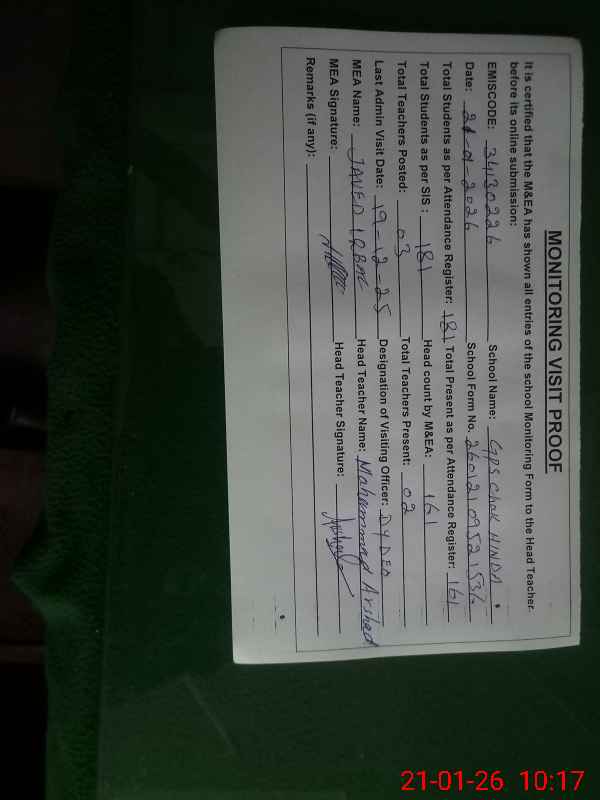 MONITORING VISIT PROOF
It is certified that the M&EA has shown all entries of the school Monitoring Form to the Head Teacher
before its online submission:
EMISCODE: 34130226 School Name: GPS Chak HINDA
Date: 21-01-2026 School Form No. 26012109521536
Total Students as per Attendance Register: 181 Total Present as per Attendance Register: 161
Total Students as per SIS : 181 Head count by M&EA: 161
Total Teachers Posted: 03 Total Teachers Present: 02
Last Admin Visit Date: 19-12-25 Designation of Visiting Officer: DY DEO
MEA Name: JAVED IQBAL Head Teacher Name: Mohammad Arshad
MEA Signature: Head Teacher Signature:
Remarks (if any):
21-01-26 10:17